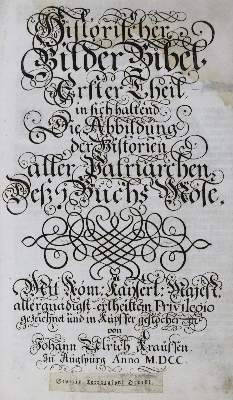 Historischer
Bilder Bibel.
Erster Theil
in sich haltend
Die Abbildung
der Historien
aller Patriarchen
Deß 1 Buchs Mose.
Mit Röm: Kaÿserl: Majest.
allergnädigst-ertheiltem Privilegio
gezeichnet und in Kupffer gestochen
von
Johann Ulrich Kraussen.
In Augspurg Anno M.DCC.